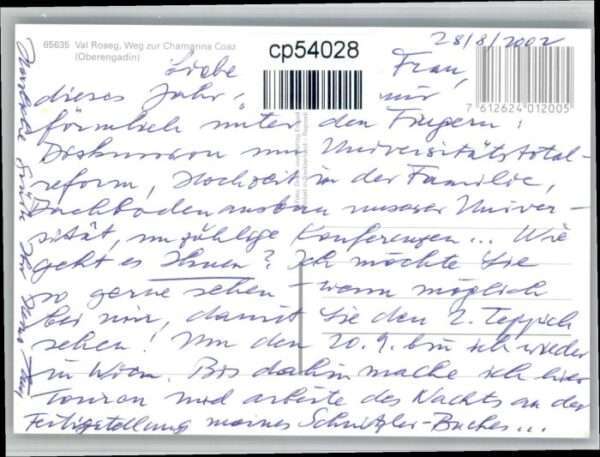 65635 Val Roseg, Weg zur Chamanna Coaz
(Oberengadin)
cp54028
28/8/2002
7 612624 012005
Liebe Frau,
dieses Jahr, mir
förmlich unter den Fingern!
Diskussion um Universitätstotal-
reform, Hochzeit in der Familie,
Dachbodenausbau unserer Univer-
sität, unzählige Konferenzen... Wie
geht es Ihnen? Ich möchte Sie
so gerne sehen – wenn möglich
bei mir, damit Sie den 2. Teppich
sehen! Um den 20.9. bin ich wieder
in Wien. Bis dahin mache ich hier
Touren und arbeite des Nachts an der
Fertigstellung meines Schnitzler-Buches...